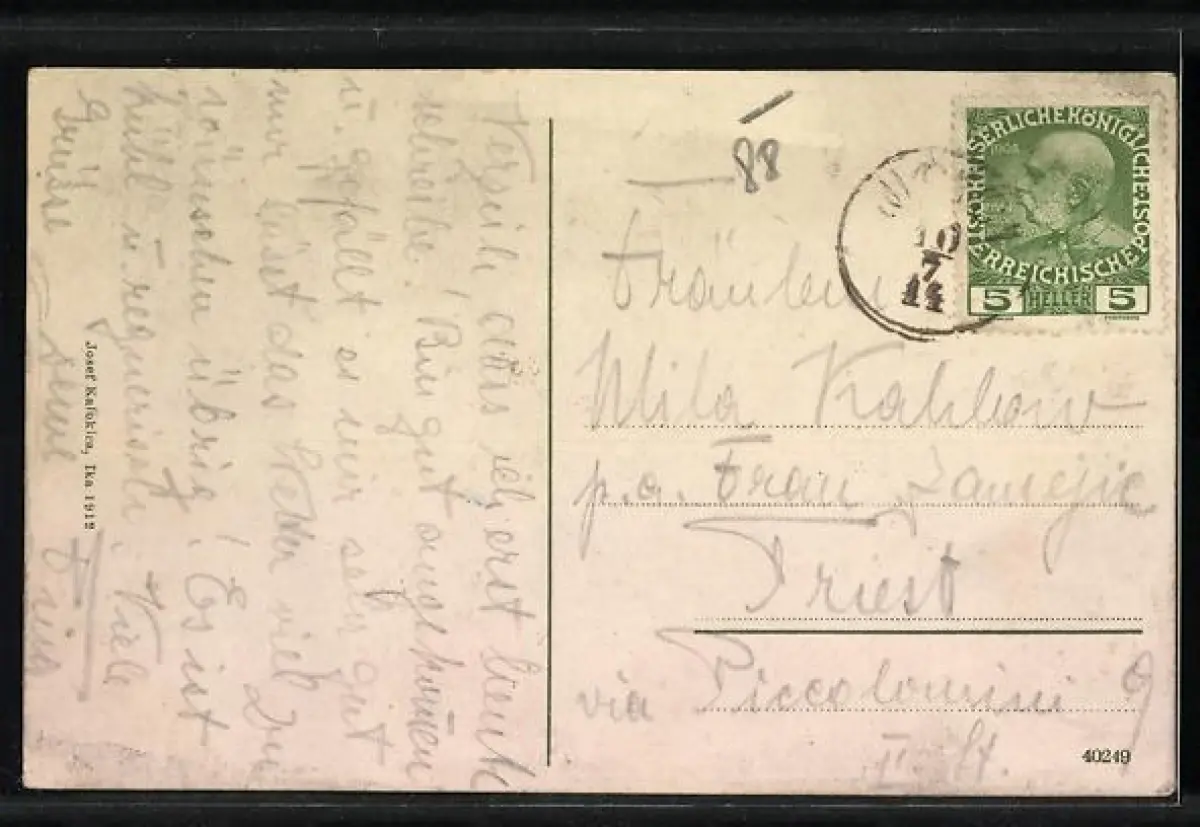 Verzeih, dass ich erst heute
schreibe! Bin gut angekom̄en
u. gefällt es mir sehr gut
nur lässt das Wetter viel zu
wünschen übrig! Es ist
kühl u. regnerisch. Viele
Grüsse
Josef Kafokira, Ika 1912
88
10
7
14
KAISERLICHEKÖNIGLICHE
ÖSTERREICHISCHE POST
1908
5 HELLER 5
Fräulein
Mila
p.a. Frau
Triest
via Piccolomini 9
II. St.
40249